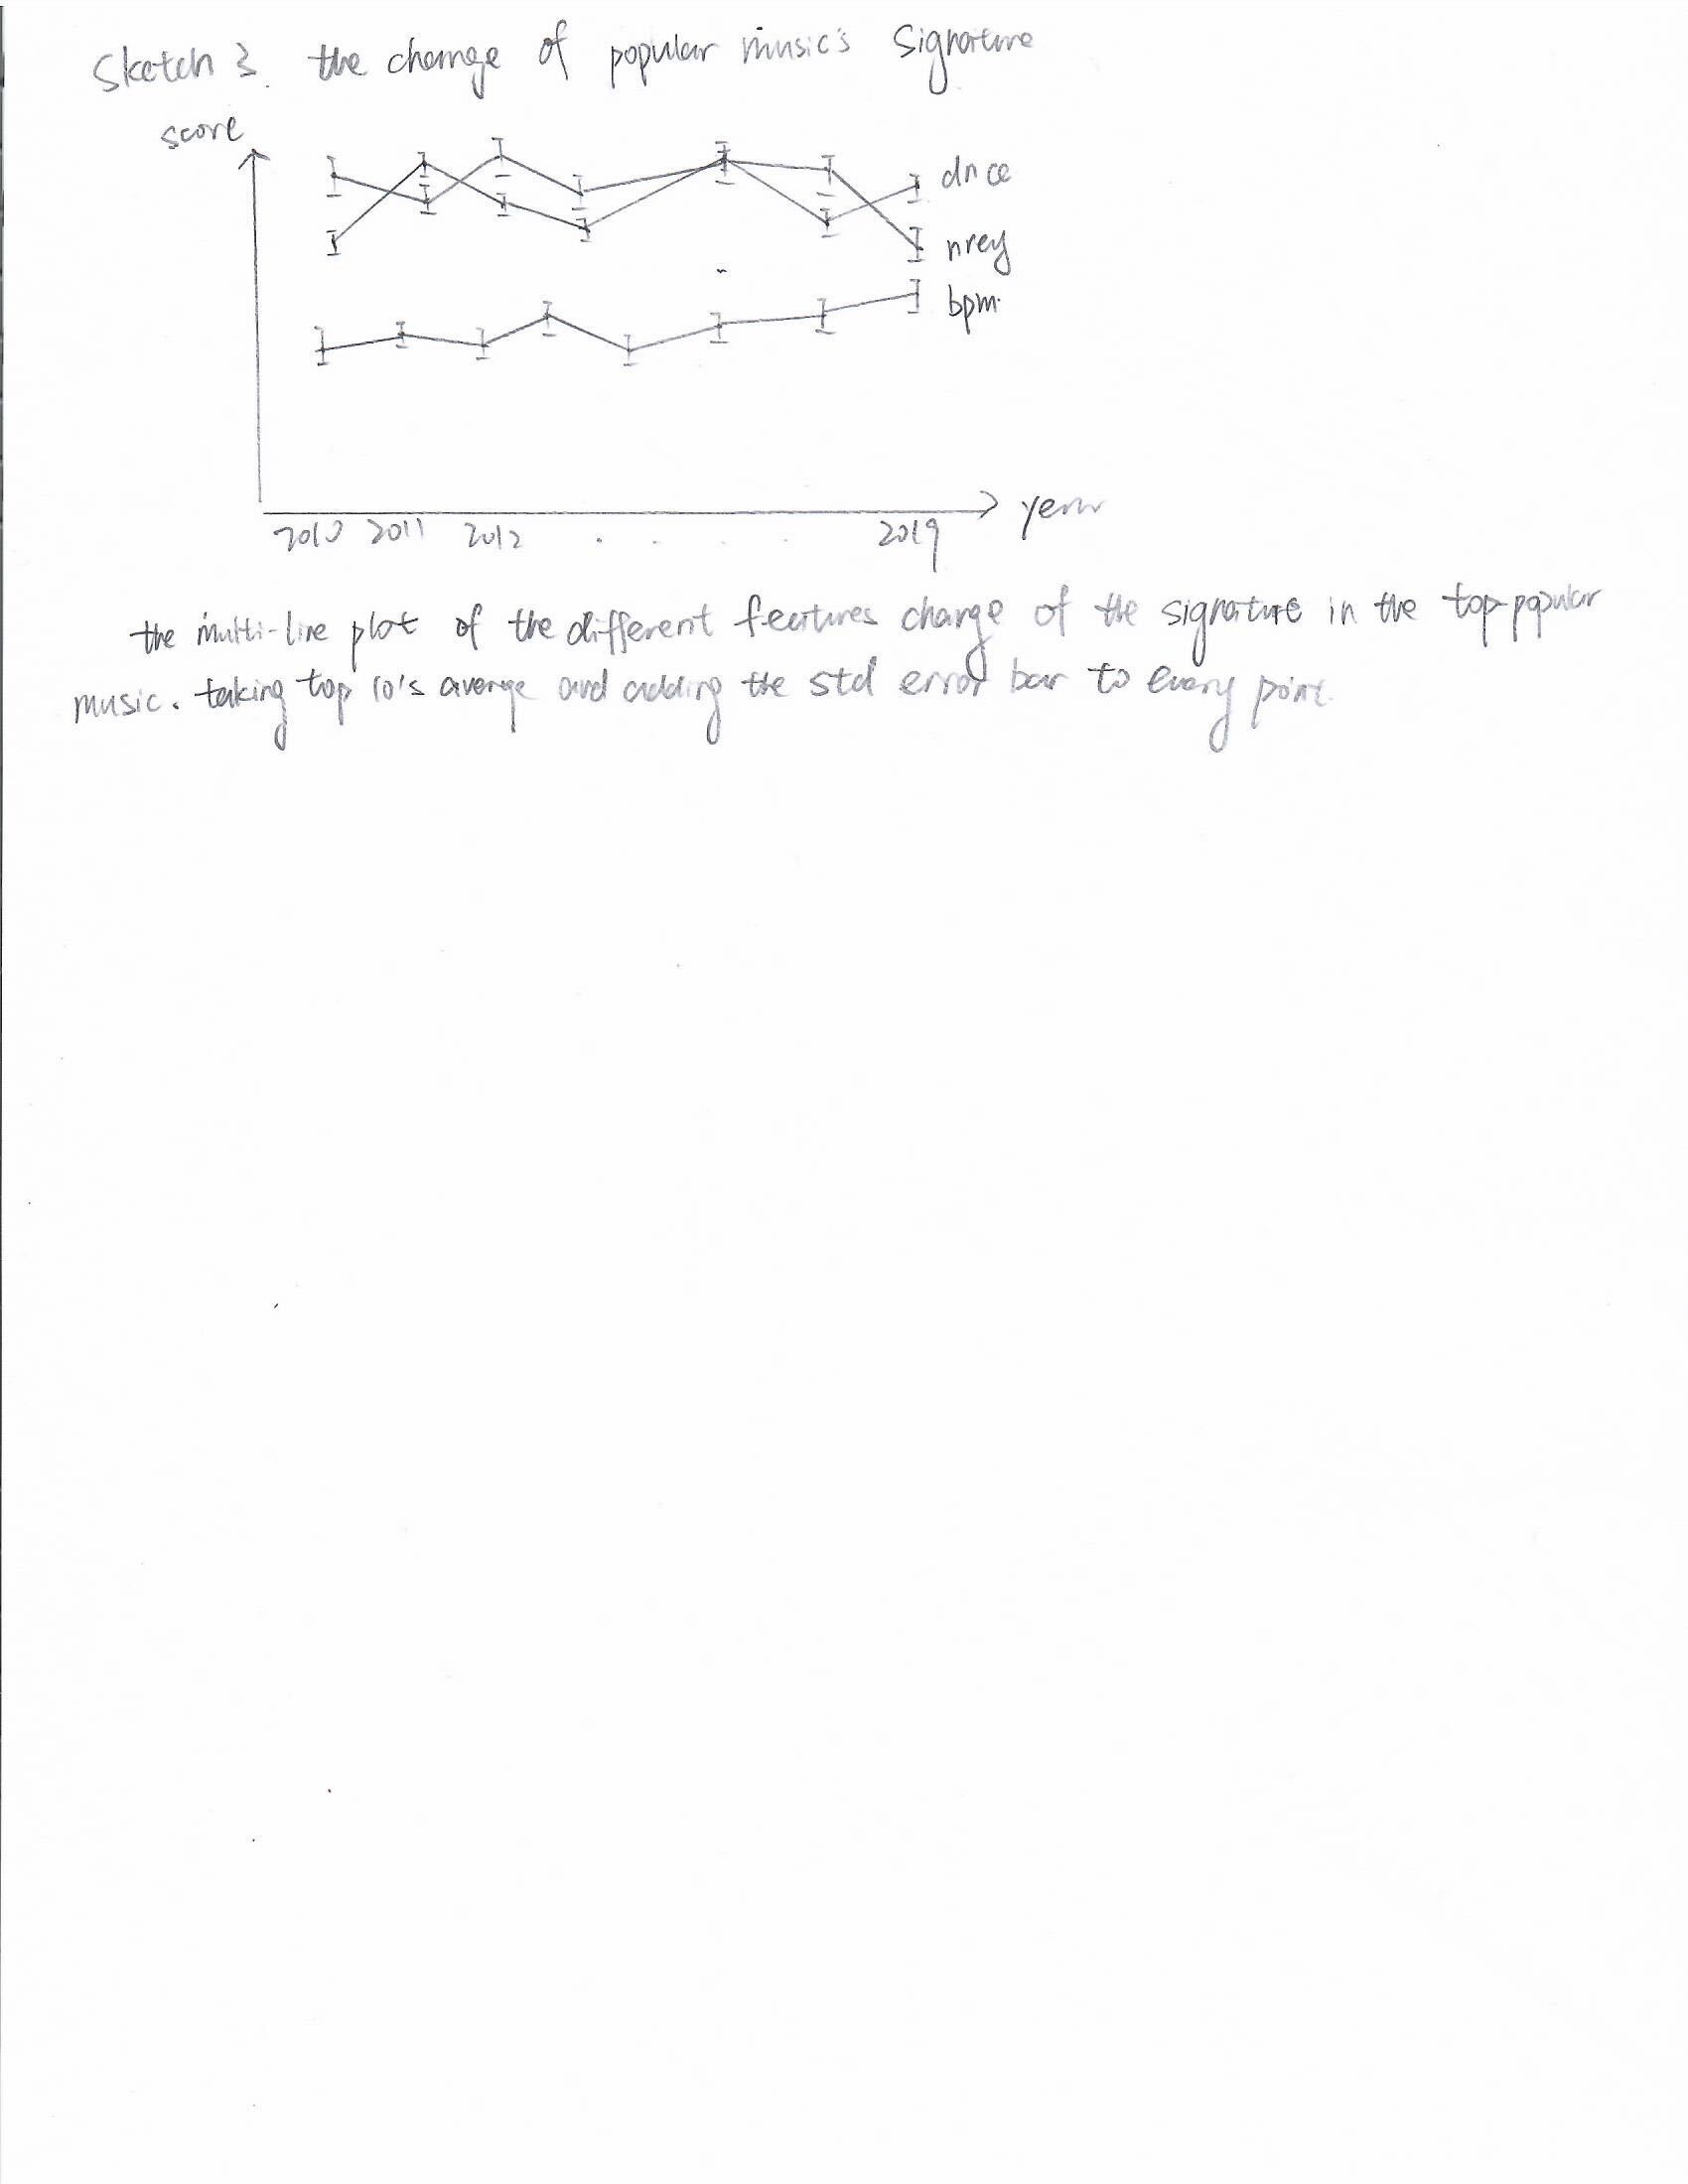 Sketch 3. the change of popular music's Signature
score
dnce
nrey
bpm.
year
2010 2011 2012 . . . . 2019
the multi-line plot of the different features change of the signature in the top popular
music. taking top 10's average and adding the std error bar to every point.